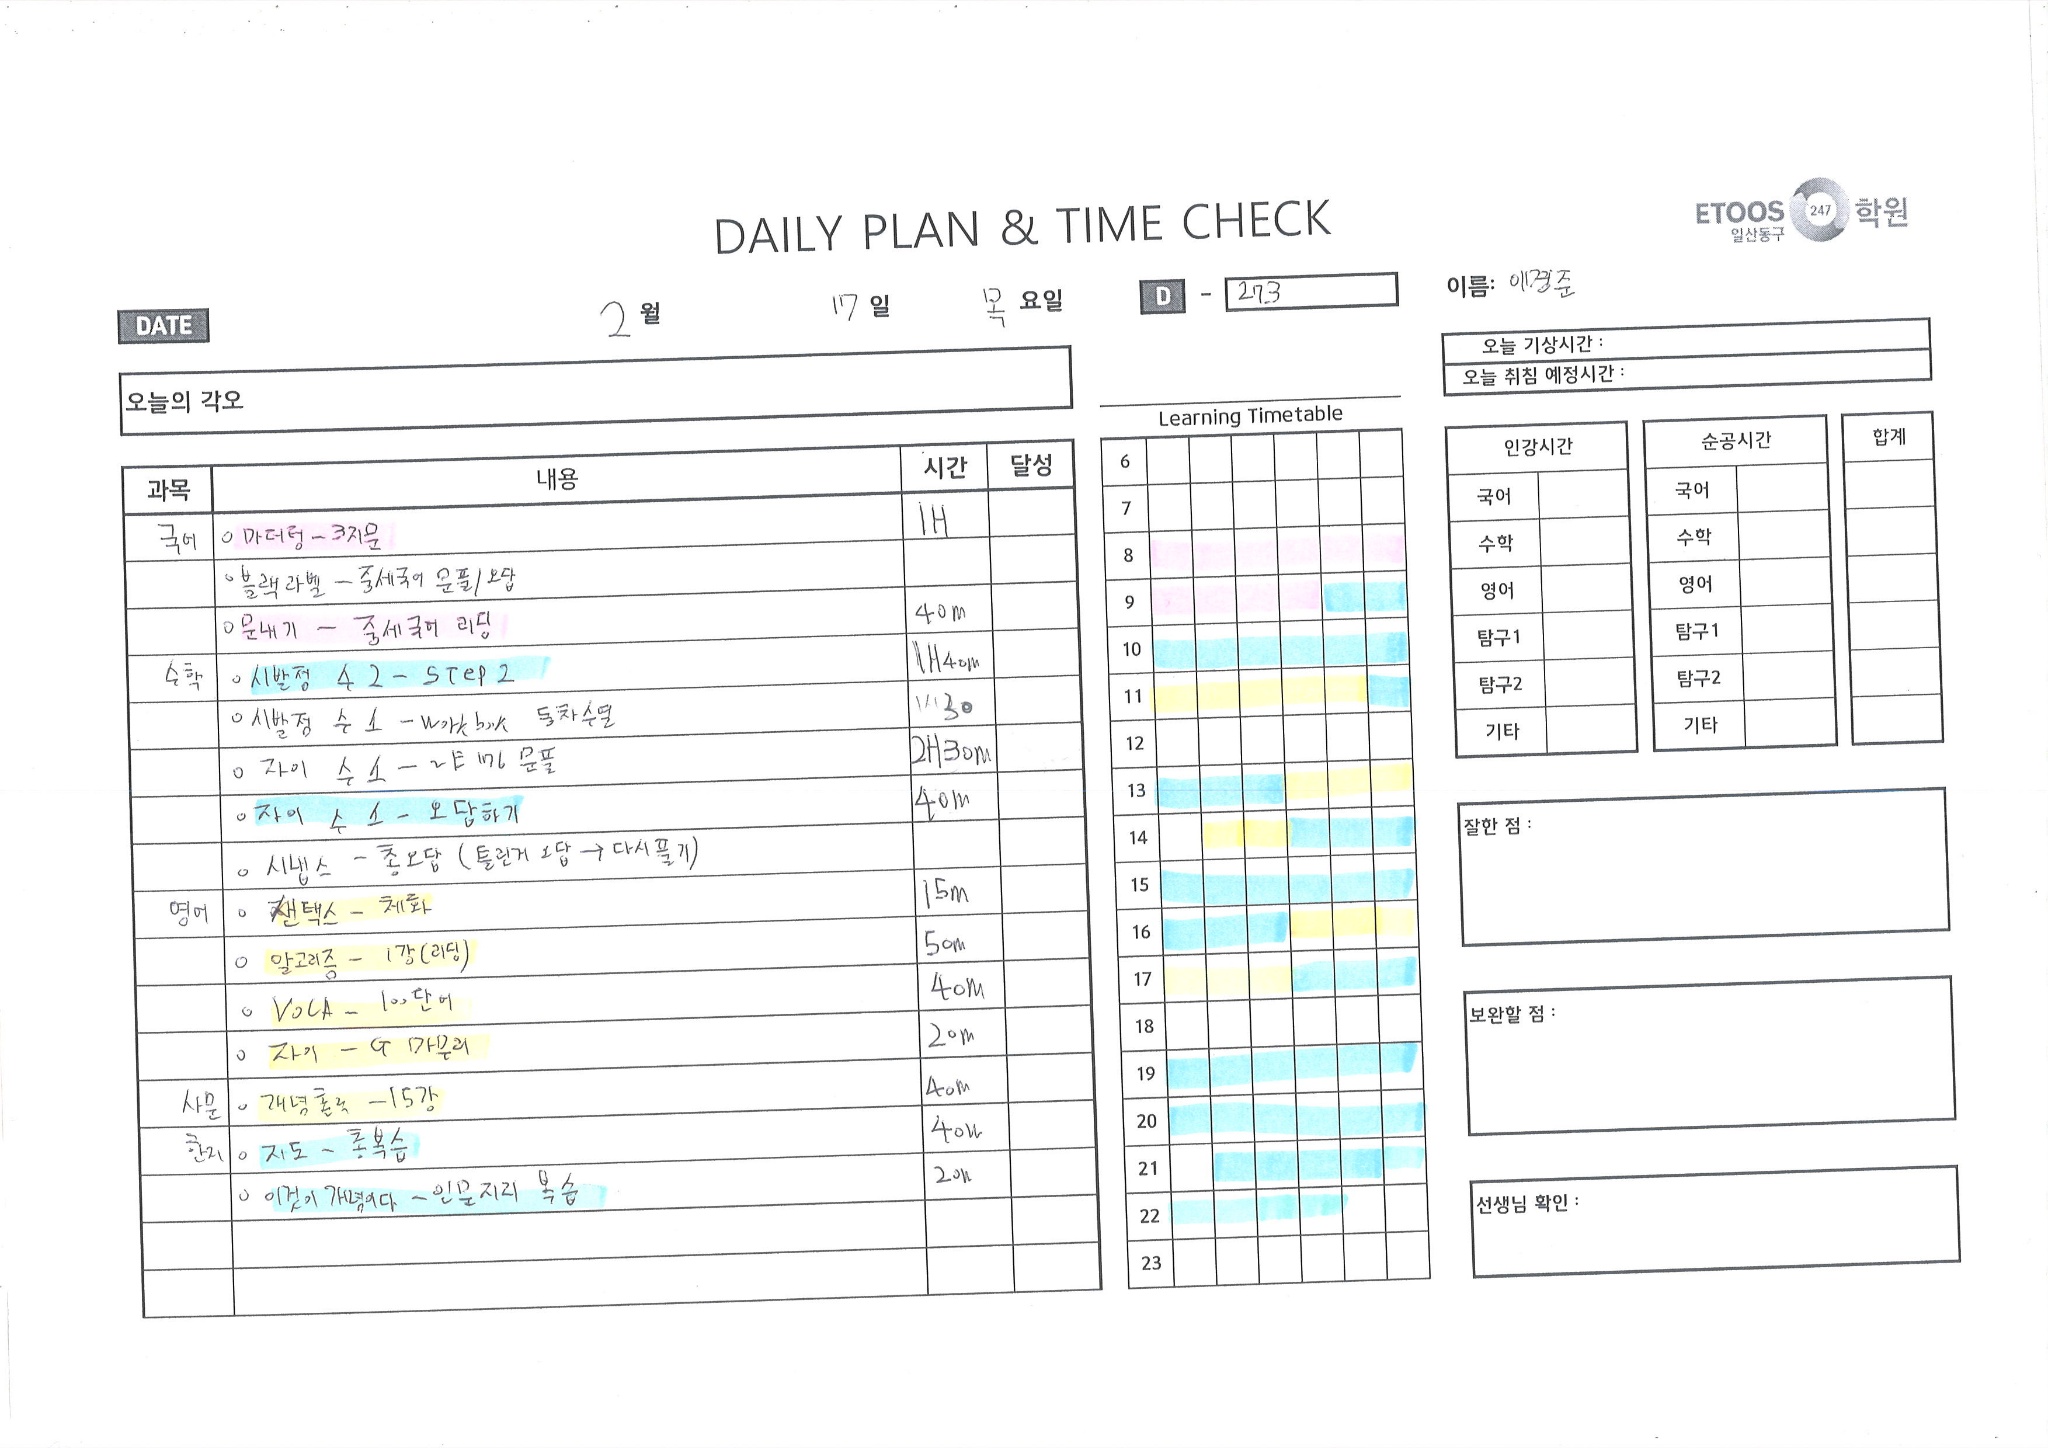 DAILY PLAN & TIME CHECK
ETOOS 247 학원
일산동구
DATE 2월 17일 목요일 D - 273 이름: 이경준
오늘의 각오
오늘 기상시간 :
오늘 취침 예정시간 :
과목 내용 시간 달성
국어 ○ 마더텅 - 3지문 1H
○ 블랙라벨 - 줄세국어 문풀/오답
○ 문내기 - 줄세국어 리딩 40m
수학 ○ 시발점 수2 - STEP 2 1H40m
○ 시발점 수 1 - workbook 등차수열
○ 자이 수 1 - 문풀 2H30m
○ 자이 수 1 - 오답하기 40m
○ 시냅스 - 총오답 (틀린거 오답 → 다시풀기)
영어 ○ 션텍스 - 체화 15m
○ 알고리즘 - 1강(리딩) 50m
○ VOCA - 100단어 40m
○ 자이 - G 마무리 20m
사문 ○ 개념 - 15강 40m
한지 ○ 지도 - 총복습 40m
○ 이것이 개념이다 - 인문지리 복습 20m
Learning Timetable
6
7
8
9
10
11
12
13
14
15
16
17
18
19
20
21
22
23
인강시간
국어
수학
영어
탐구1
탐구2
기타
순공시간
국어
수학
영어
탐구1
탐구2
기타
합계
잘한 점 :
보완할 점 :
선생님 확인 :